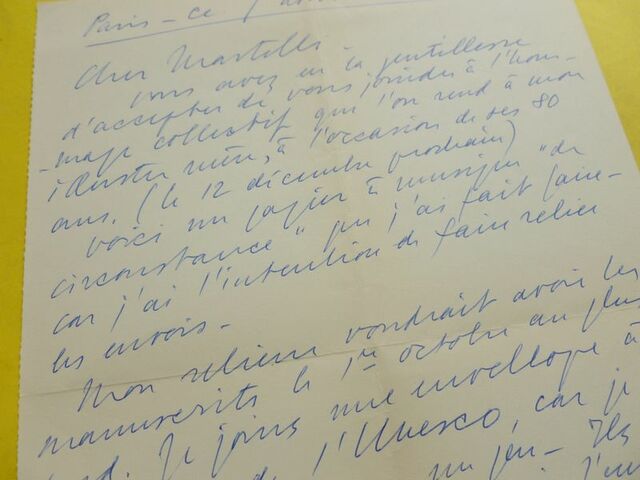 Paris - ce
Cher Martelli -
vous avez eu la gentillesse
d'accepter de vous joindre à l'hom-
-mage collectif que l'on rend à mon
illustre mère, à l'occasion de ses 80
ans. (le 12 décembre prochain)
Voici un papier à musique "de
circonstance" que j'ai fait faire -
car j'ai l'intention de faire relier
les envois -
Mon relieur voudrait avoir les
manuscrits le 1er octobre au plus
tard. Je joins une enveloppe à
de l'Unesco, car je
un peu - Ils